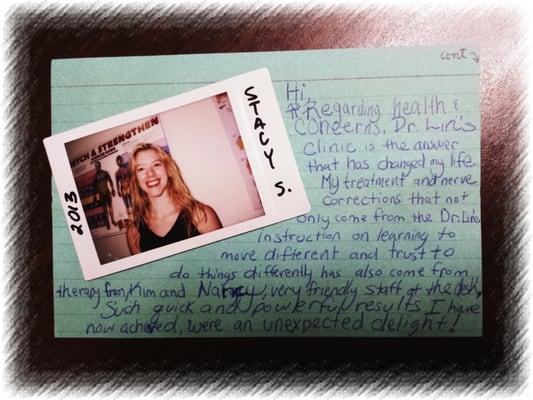 cont
Hi,
Regarding health &
concerns, Dr. Lin's
Clinic is the answer
that has changed my life.
My treatment and nerve
corrections that not
only come from the Dr. Lin's
instruction on learning to
move different and trust to
do things differently has also come from
therapy from Kim and Nancy, very friendly staff at the desk.
Such quick and powerful results I have
now achieved, were an unexpected delight!
STACY S.
2013
TCH & STRENGTHEN